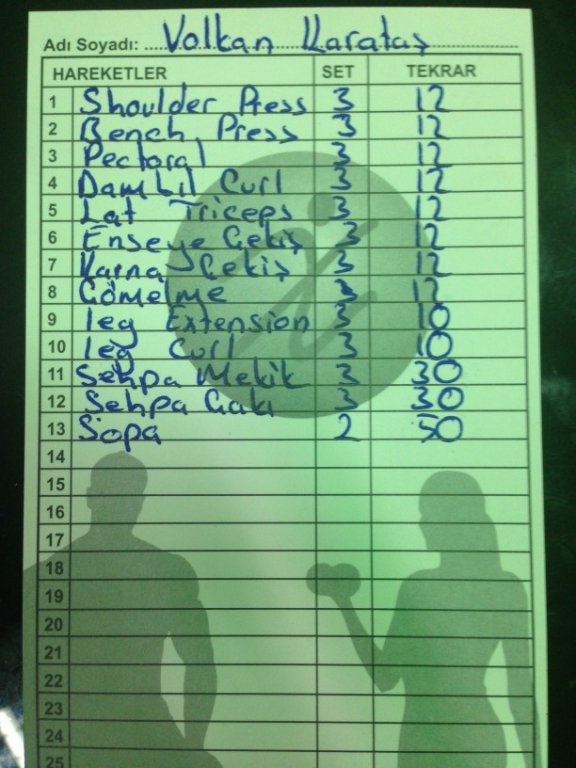 Adı Soyadı: Volkan Karataş
HAREKETLER SET TEKRAR
1 Shoulder Press 3 12
2 Bench Press 3 12
3 Pectoral 3 12
4 Dambıl Curl 3 12
5 Lat Triceps 3 12
6 Enseye Çekiş 3 12
7 Karna Çekiş 3 12
8 Çömelme 3 12
9 leg Extension 3 10
10 leg Curl 3 10
11 Sehpa Mekik 3 30
12 Sehpa 3 30
13 Sopa 2 50
14
15
16
17
18
19
20
21
22
23
24
25